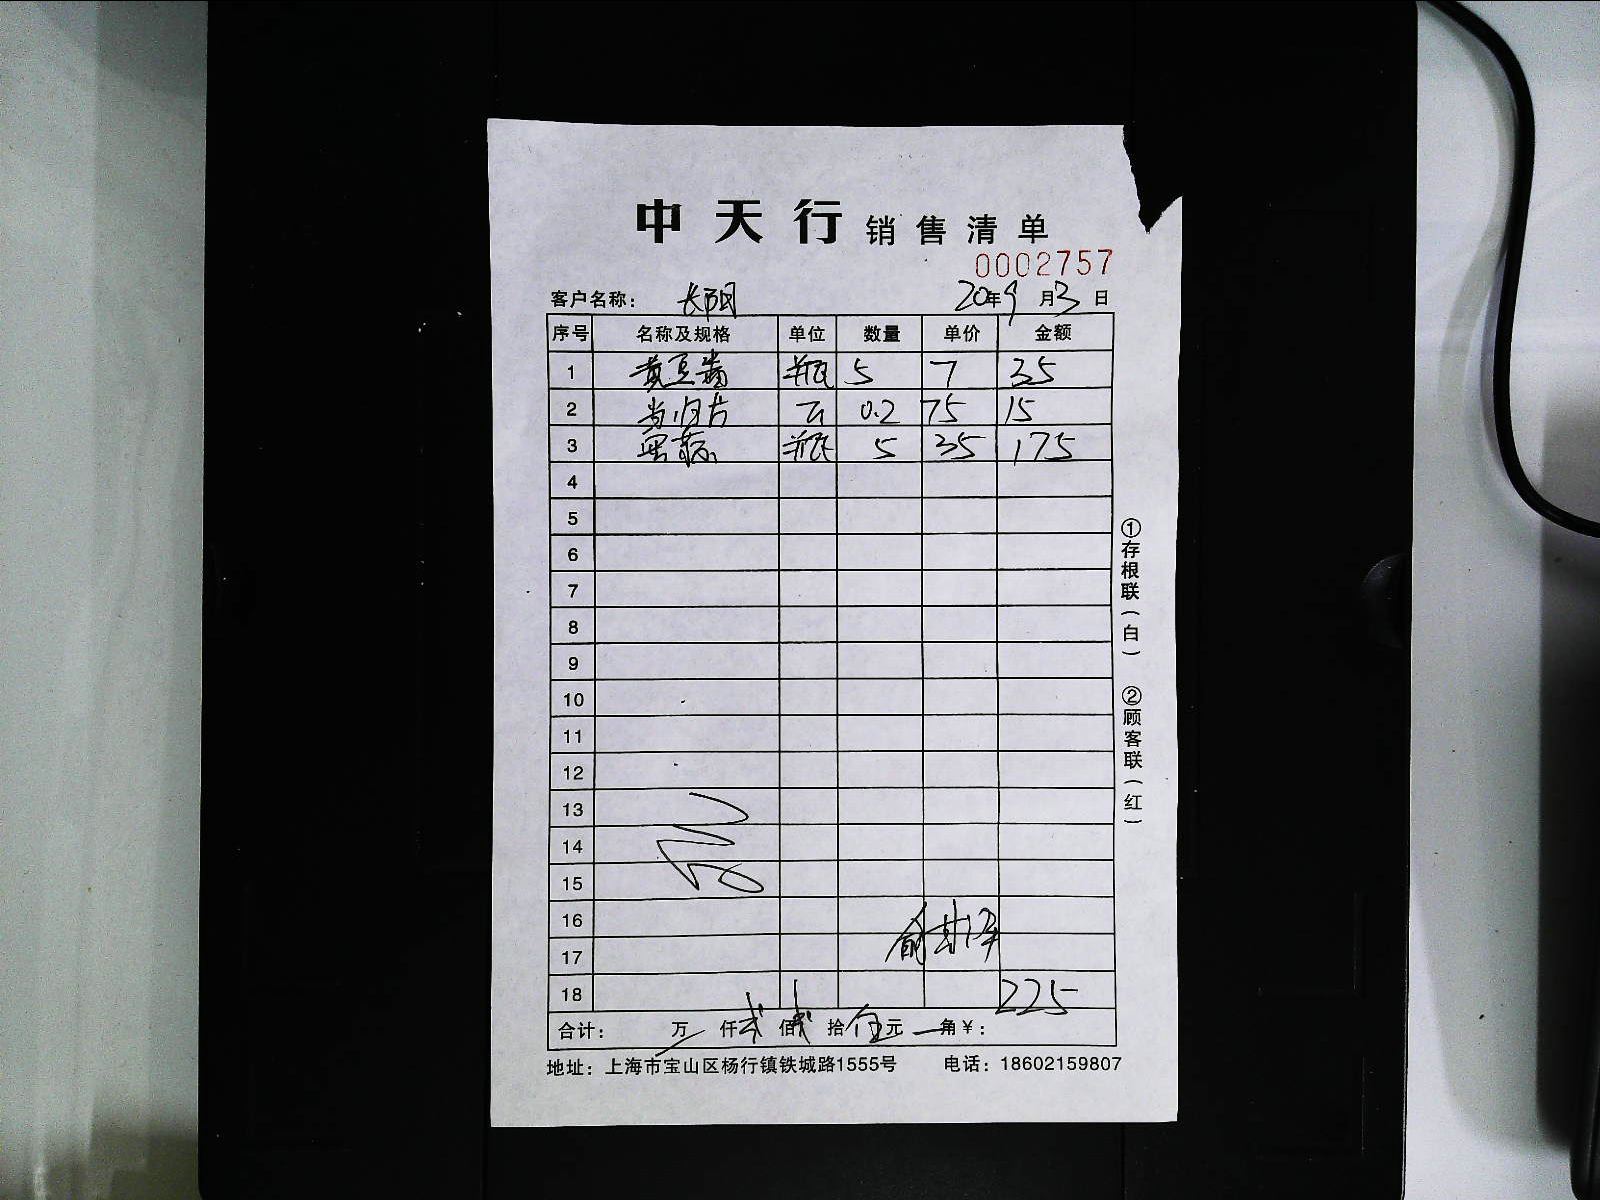 中天行 销售清单
0002757
客户名称： 长阳 20年9月3日
序号 名称及规格 单位 数量 单价 金额
1 黄豆酱 瓶 5 7 35
2 当归片 斤 0.2 75 15
3 瓶 5 35 175
4
5
6
7
8
9
10
11
12
13
14
15
16
17
18 225
合计： 万 仟 贰 佰 贰 拾 伍 元 角 ¥：
地址：上海市宝山区杨行镇铁城路1555号 电话：18602159807
①存根联（白） ②顾客联（红）